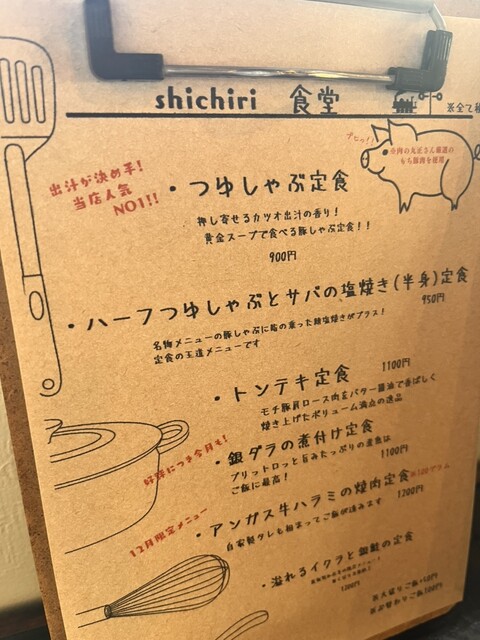 shichiri 食堂
※全て
ブヒッ!!
もち豚肉を使用
出汁が決め手!
当店人気
NO1!!
・つゆしゃぶ定食
押し寄せるカツオ出汁の香り!
黄金スープで食べる豚しゃぶ定食!!
900円
・ハーフつゆしゃぶとサバの塩焼き(半身)定食
950円
名物メニューの豚しゃぶに脂の乗った鯖塩焼きがプラス!
定食の王道メニューです
・トンテキ定食
1100円
モチ豚肩ロース肉をバター醤油で香ばしく
焼き上げたボリューム満点の逸品
好評につき今月も!
・銀ダラの煮付け定食
プリットロッと旨みたっぷりの煮魚は
ご飯に最高!
1100円
12月限定メニュー
・アンガス牛ハラミの焼肉定食※200グラム
自家製ダレも相まってご飯が進みます
1200円
・溢れるイクラと銀鮭の定食
1200円
※大盛りご飯+50円
※お替わりご飯100円